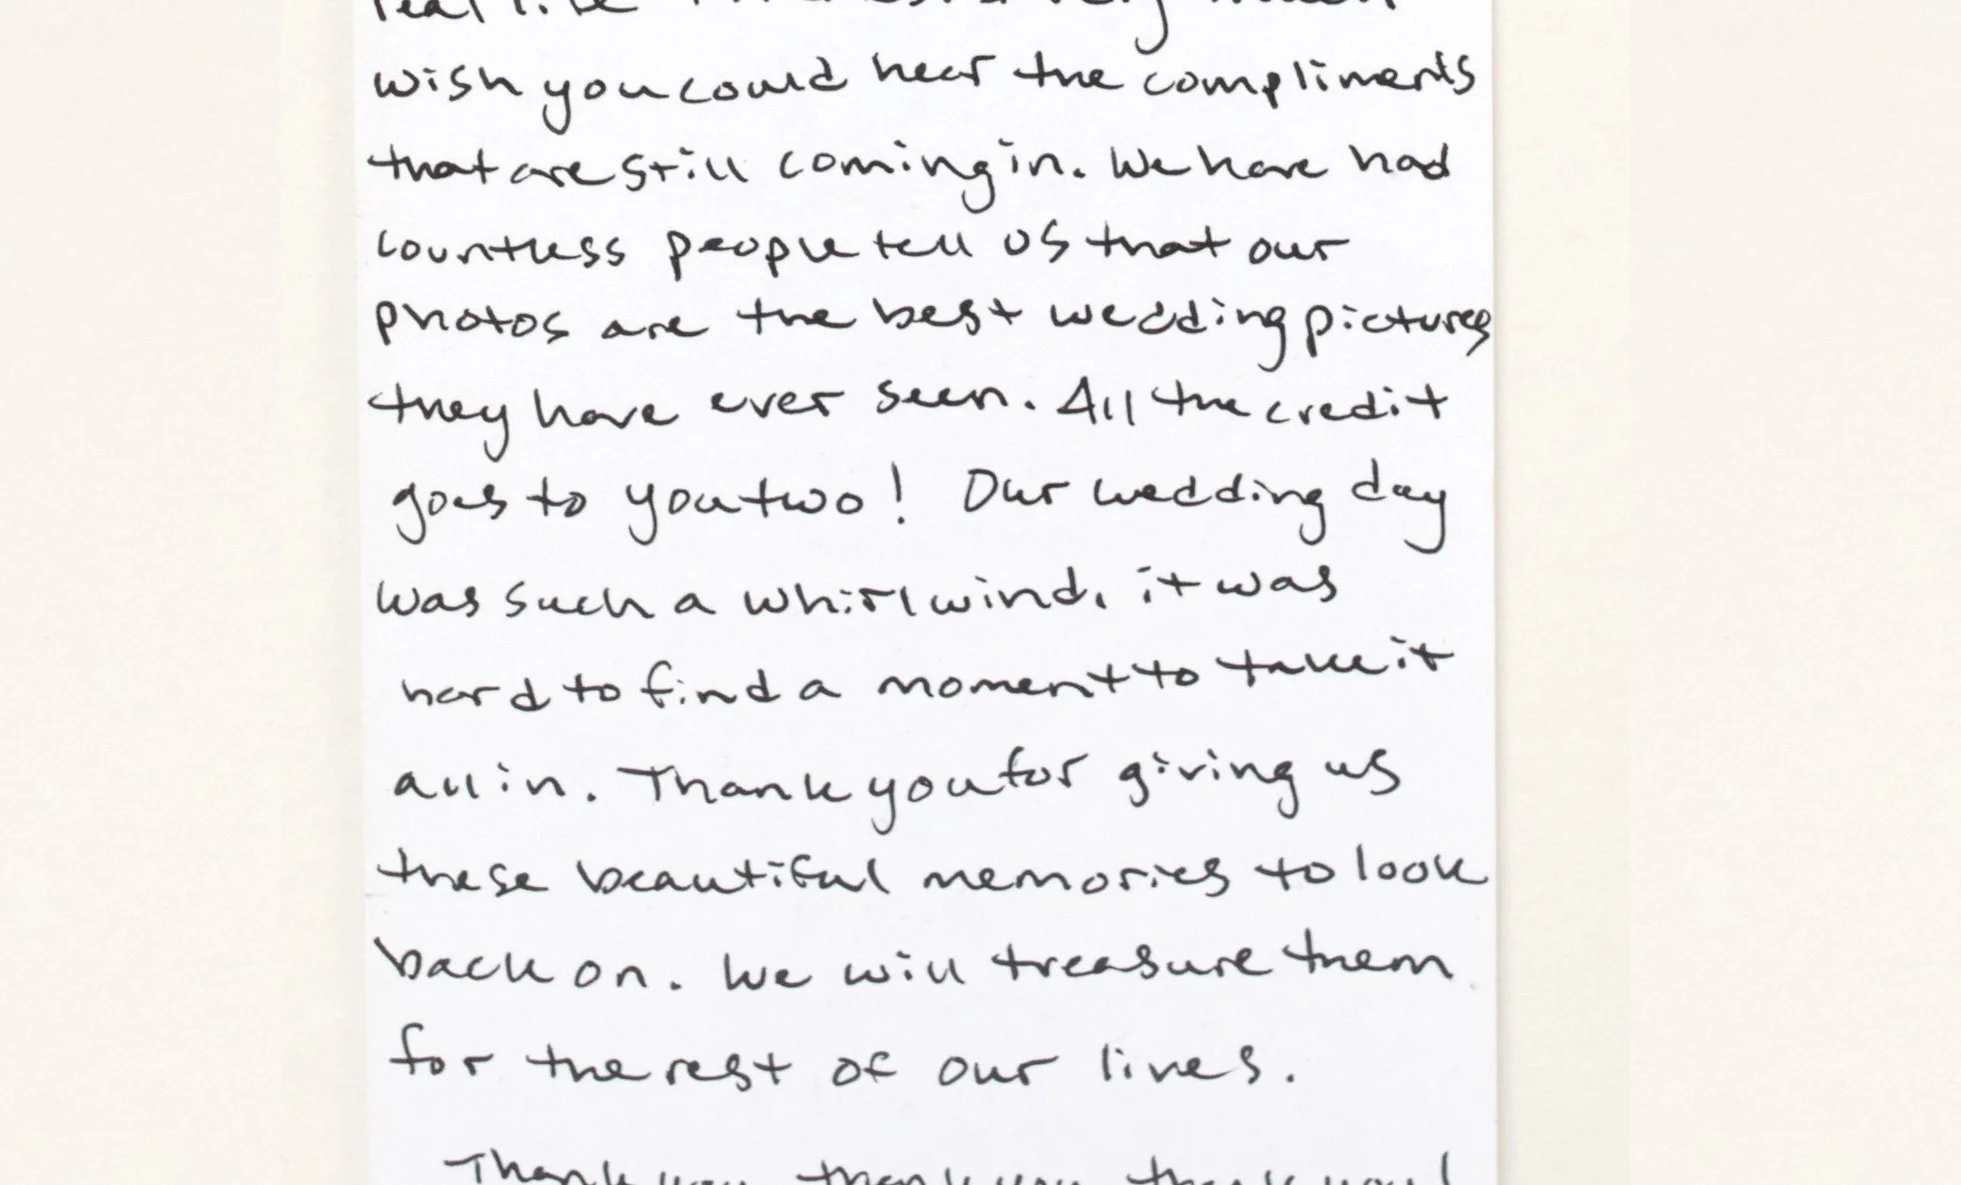 wish you could hear the compliments
that are still coming in. We have had
countless people tell us that our
photos are the best wedding pictures
they have ever seen. All the credit
goes to you two! Our wedding day
was such a whirlwind, it was
hard to find a moment to take it
all in. Thank you for giving us
these beautiful memories to look
back on. We will treasure them
for the rest of our lives.
Thank you, thank you, thank you!